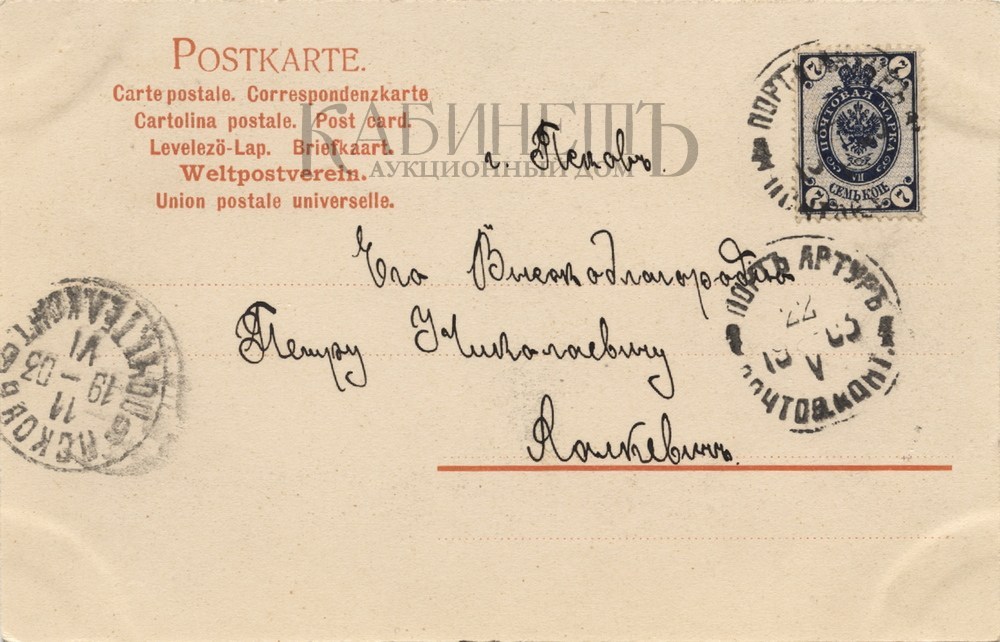 POSTKARTE.
Carte postale. Correspondenzkarte
Cartolina postale. Post card.
Levelezö-Lap. Briefkaart.
Weltpostverein.
Union postale universelle.
КАБИНЕТЪ
АУКЦИОННЫЙ ДОМ
г. Псковъ.
7 7
ПОЧТОВАЯ МАРКА
VII
СЕМЬ КОП.
7 7
ПОРТЪ
Его Высокоблагородію
Петру Николаевичу
Ялкевичъ.
ПОРТЪ АРТУРЪ
22
19 03
V
ПОЧТОВ. КОНТ.
ПСКОВЪ
11
19 - 03
VI